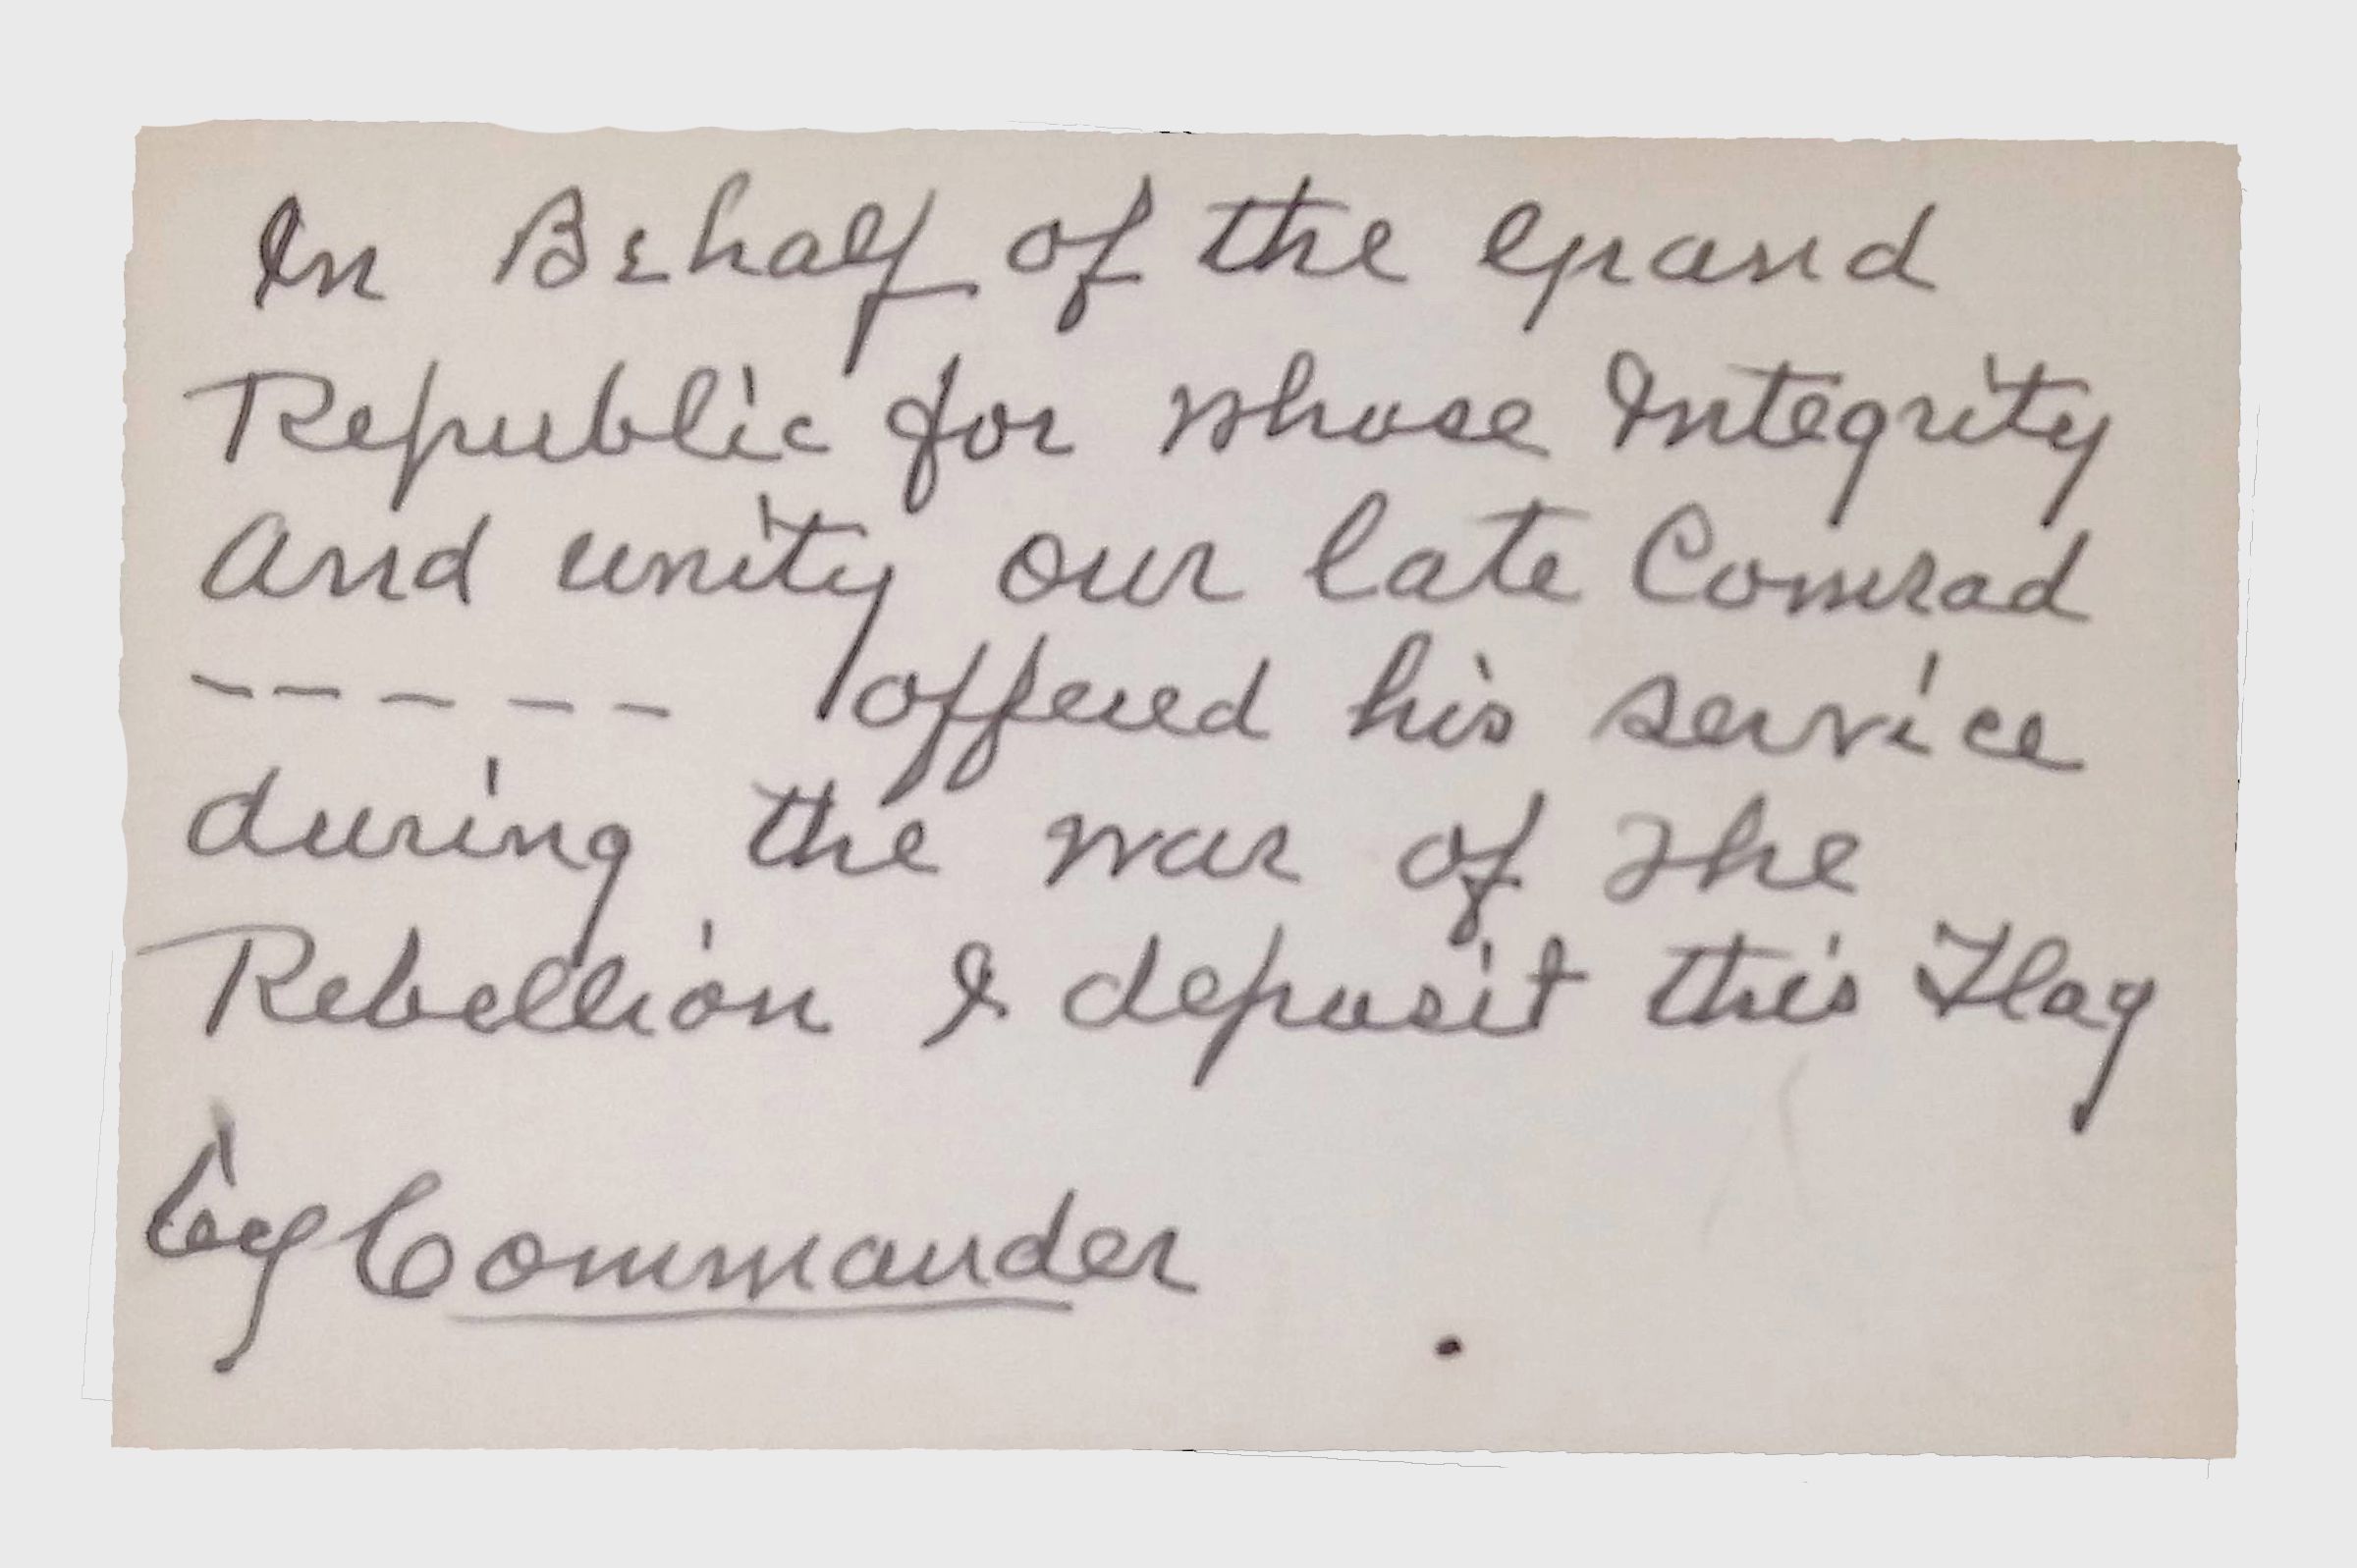 In Behalf of the Grand
Republic for whose Integrity
And unity our late Comrad
- - - - - offered his service
during the war of the
Rebellion I deposit this Flag
by Commander